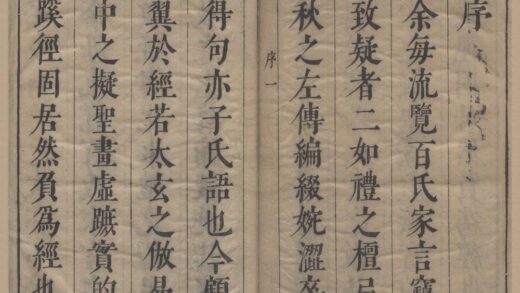 序
余每流覽百氏家言竊
致疑者二如禮之檀弓
秋之左傳編綴婉澀卒
序一
得句亦子氏語也今顧
翼於經若太玄之倣易
中之擬聖畫虛蹠實的
蹊徑固居然負為經也